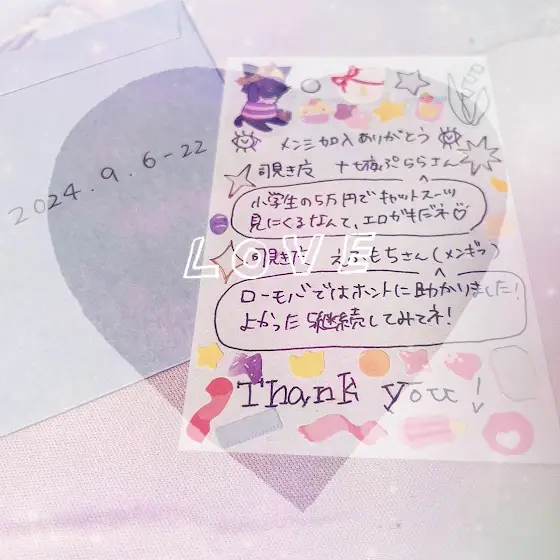 2024.9.6-22
メンミ加入ありがとう
司見き皮 十七夜ぷららさん
小学生の5万円でキャットスーツ
見にくるなんて、エロガキだネ♡
LOVE
司見きた えふもちさん(メンギフ)
ローモバではホントに助かりました!
よかった継続してみてネ!
Thank you!